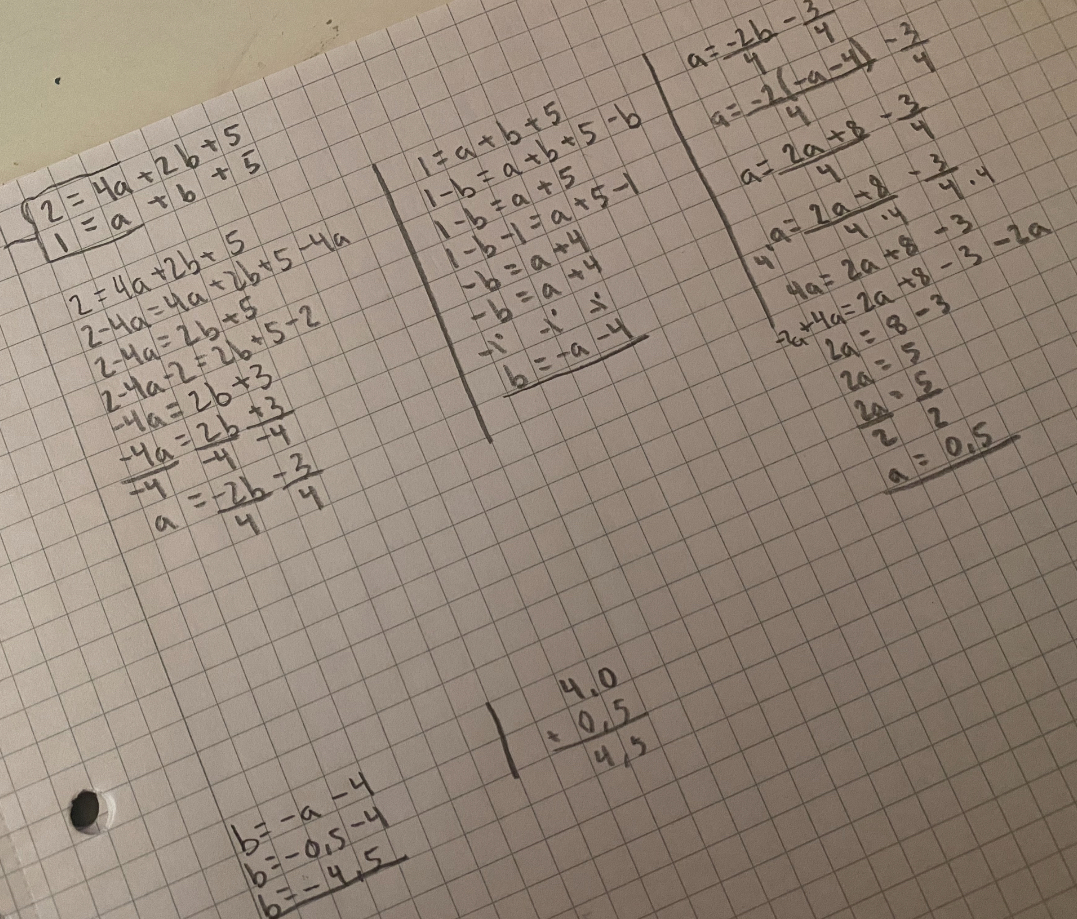 2 = 4a + 2b + 5
1 = a + b + 5
2 = 4a + 2b + 5
2 - 4a = 4a + 2b + 5 - 4a
2 - 4a = 2b + 5
2 - 4a - 2 = 2b + 5 - 2
-4a = 2b + 3
-4a/-4 = 2b/-4 + 3/-4
a = -2b/4 - 3/4
1 = a + b + 5
1 - b = a + b + 5 - b
1 - b = a + 5
1 - b - 1 = a + 5 - 1
-b = a + 4
-b = a + 4
-1 -1 -1
b = -a - 4
a = -2b/4 - 3/4
a = -2(-a - 4)/4 - 3/4
a = 2a + 8/4 - 3/4
4 · a = 2a + 8/4 · 4 - 3/4 · 4
4a = 2a + 8 - 3
-2a + 4a = 2a + 8 - 3 - 2a
2a = 8 - 3
2a = 5
2a/2 = 5/2
a = 0,5
b = -a - 4
b = -0,5 - 4
b = -4,5
4,0
+ 0,5
4,5